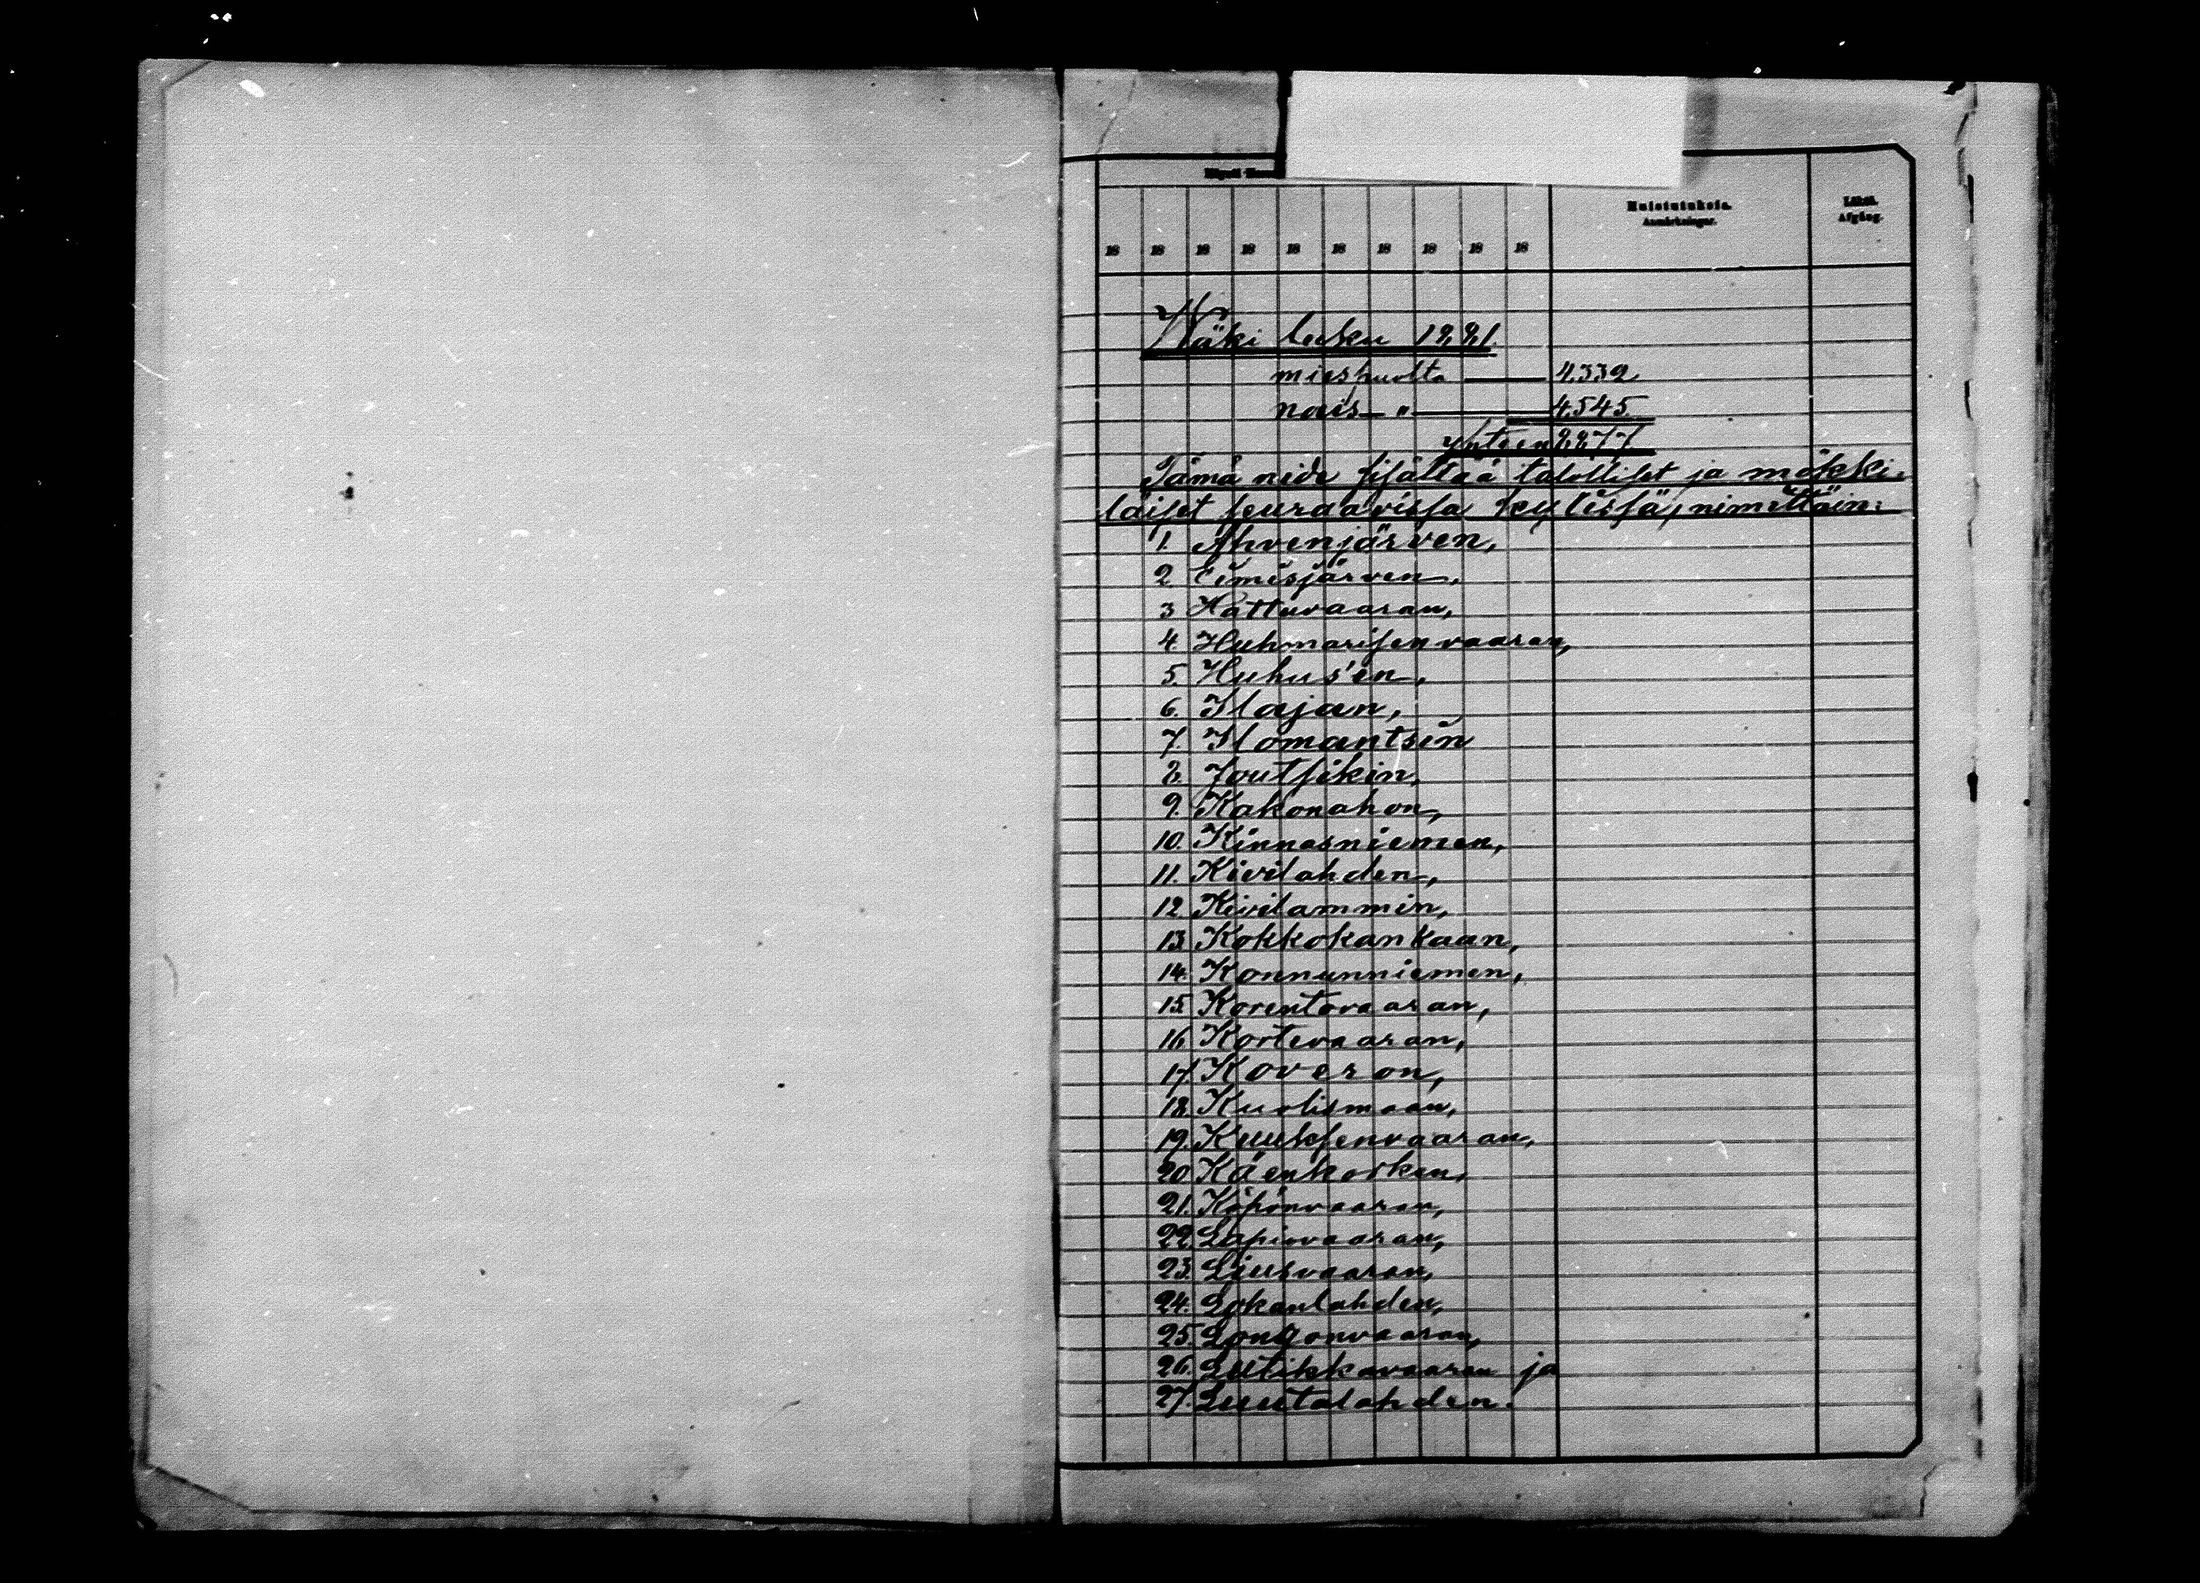 Muistutuksia.
Anmärkningar.
Lähtö.
Afgång.
18 18 18 18 18 18 18 18 18 18
Wäki luku 1881.
miespuolta — 4332
nais — " — 4545
yhteen 8877
Tämä nide sisältää talolliset ja mökki-
läiset seuraavissa kylissä, nimittäin:
1. Ahvenjärven,
2 Eimisjärven,
3 Hattuvaaran,
4. Huhmarisenvaaran,
5. Huhus'en,
6. Ilajan,
7. Ilomantsin
8. Joutsikin,
9. Kakonahon,
10. Kinnasniemen,
11. Kivilahden,
12. Kivilammin,
13. Kokkokankaan,
14. Konnunniemen,
15. Korentovaaran,
16. Kortevaaran,
17. Koveron,
18. Kuolismaan,
19. Kuuksenvaaran,
20. Käenkosken,
21. Köpönvaaran,
22. Lapiovaaran,
23. Liusvaaran,
24. Lokanlahden,
25. Longonvaaran,
26. Lutikkavaaran ja
27. Luutalahden.